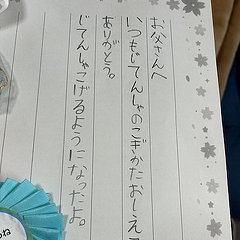 お父さんへ
いつもじてんしゃのこぎかたおしえて
ありがとう。
じてんしゃこげるようになったよ。
ね